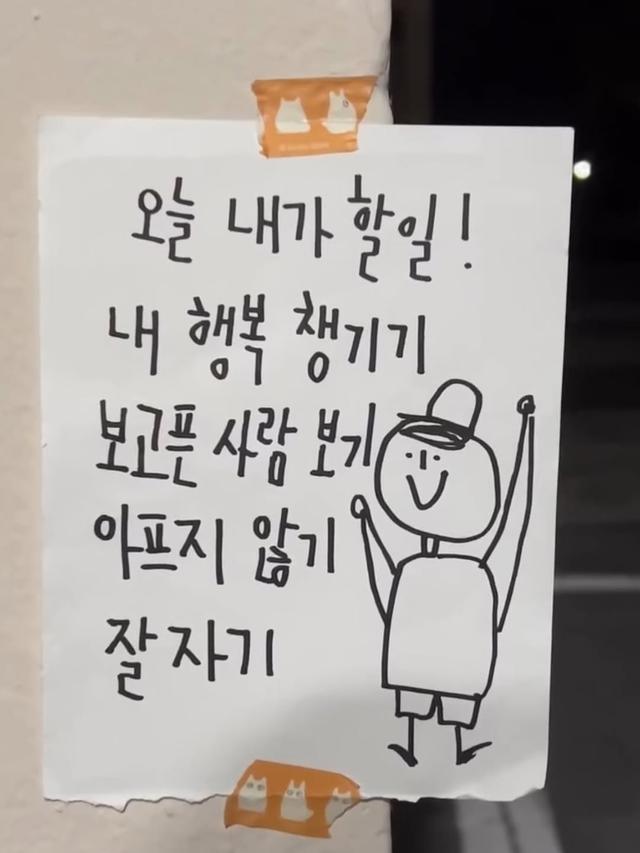 오늘 내가 할일!
내 행복 챙기기
보고픈 사람 보기
아프지 않기
잘 자기